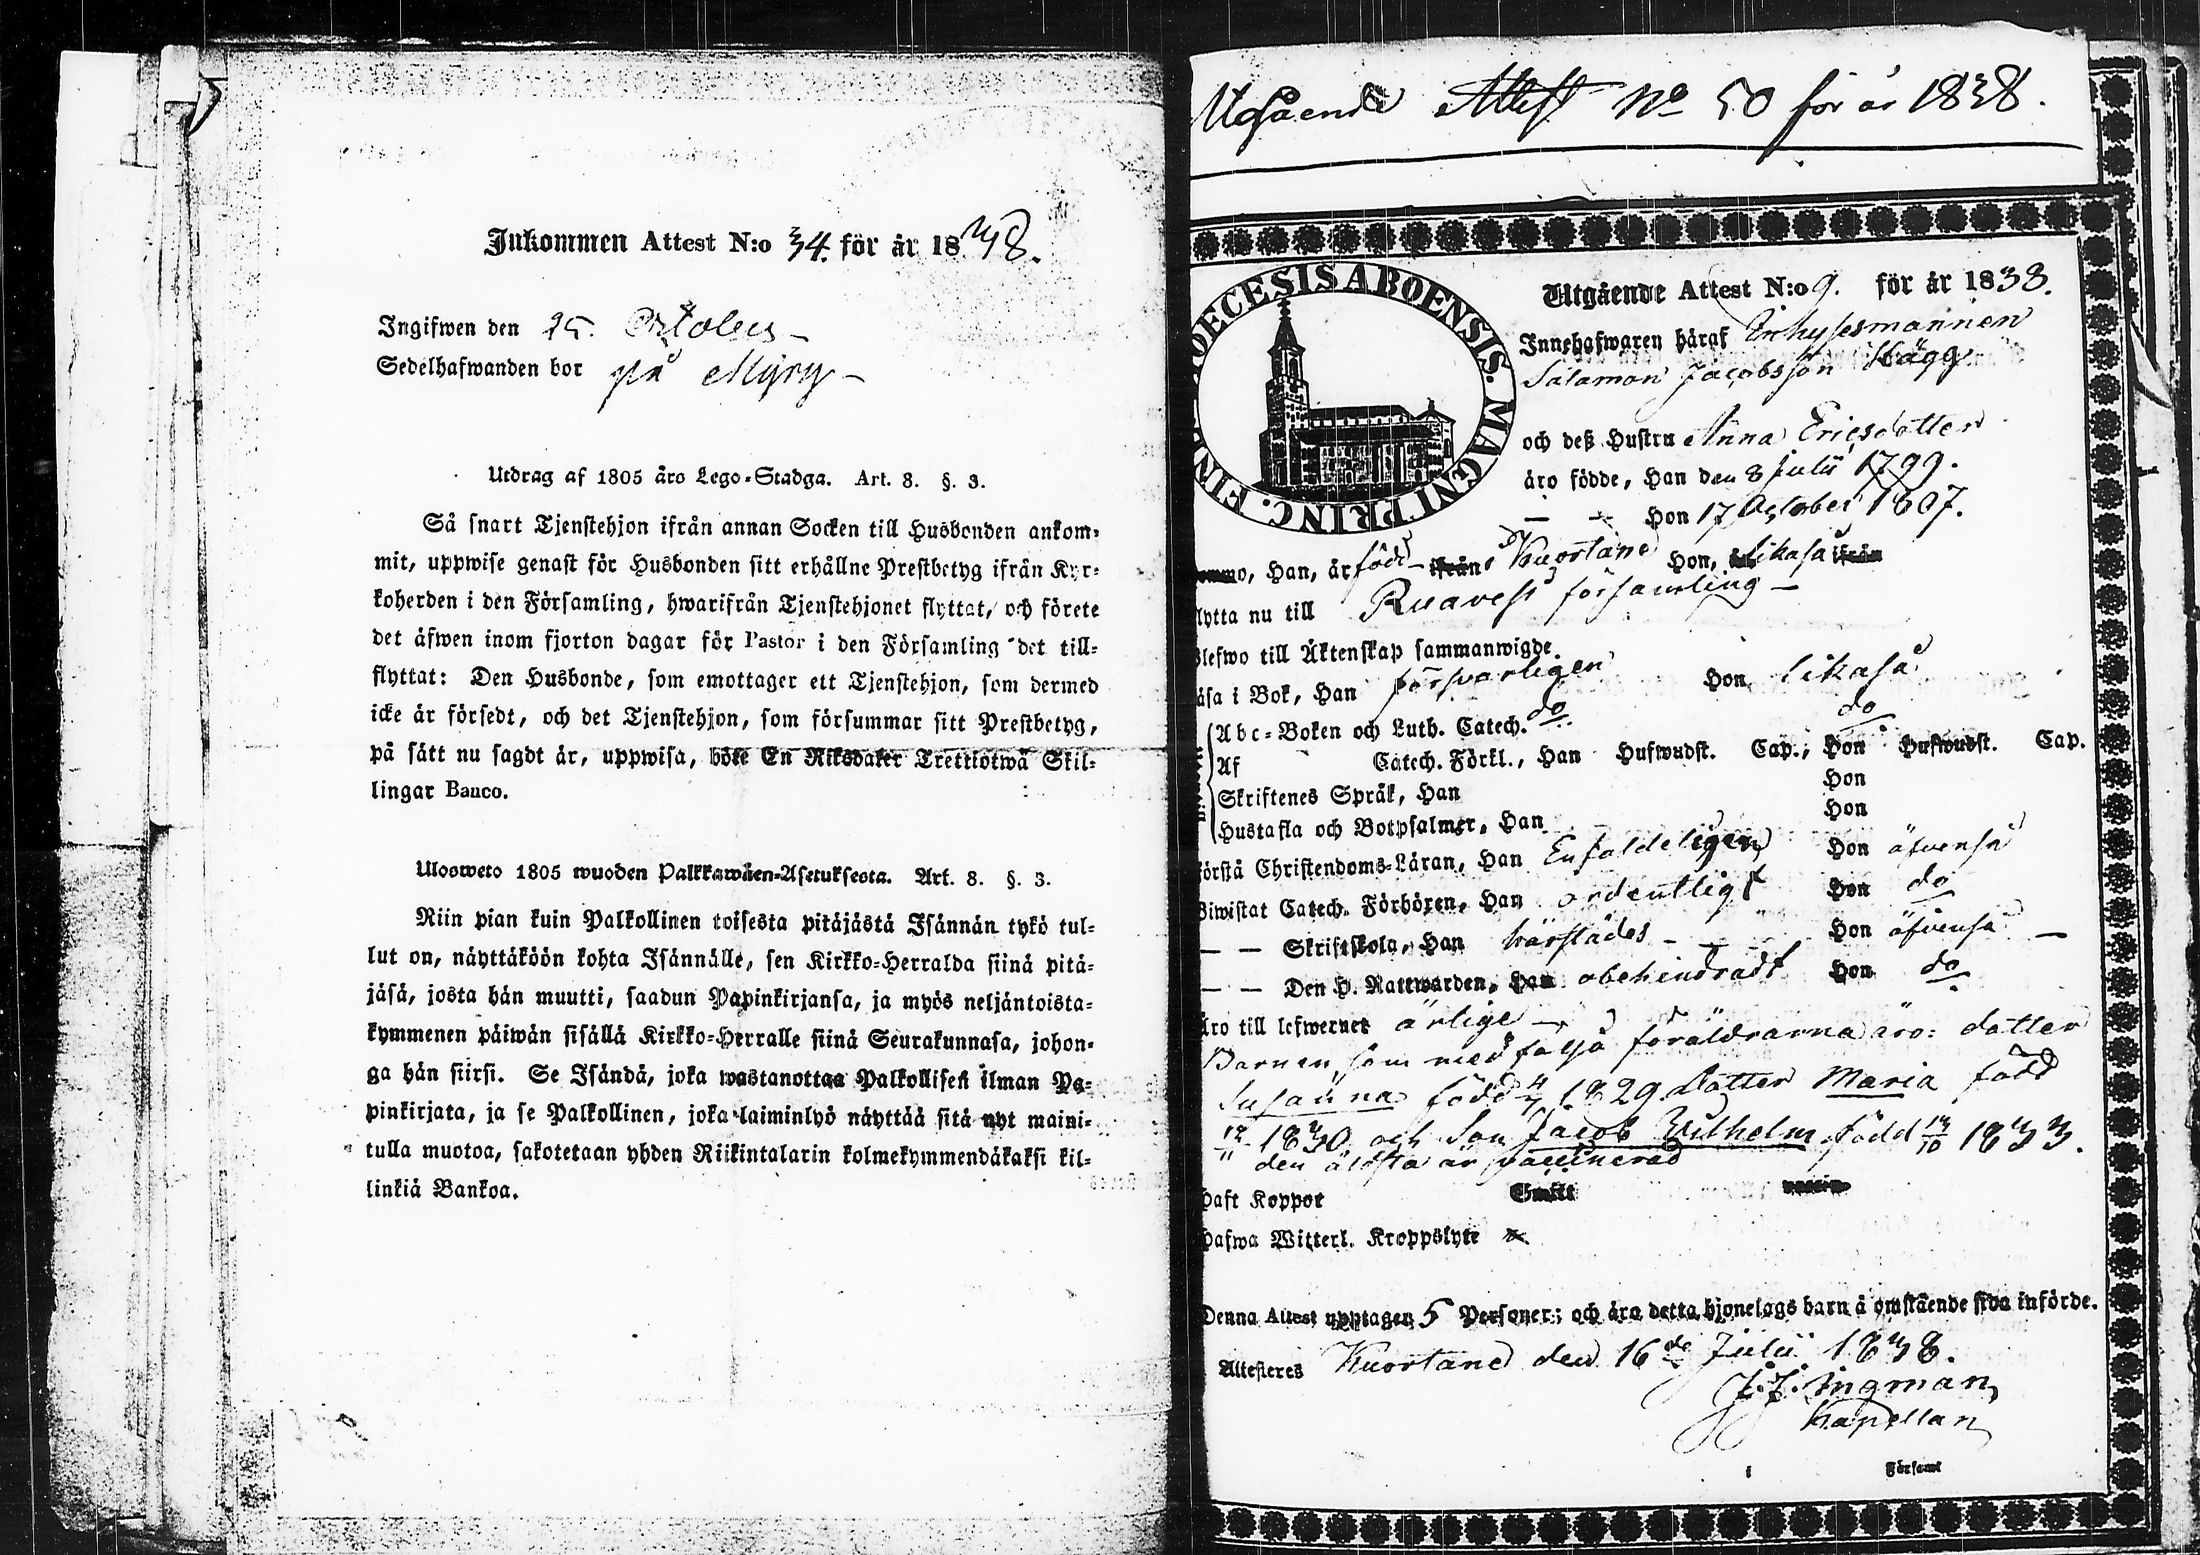 Inkommen Attest N:o 34. för år 1838.
Ingifwen den 25. October
Sedelhafwanden bor på Myry
Utdrag af 1805 års Lego-Stadga. Art. 8. §. 3.
Så snart Tjenstehjon ifrån annan Socken till Husbonden ankom-
mit, uppwise genast för Husbonden sitt erhållne Prestbetyg ifrån Kyr-
koherden i den Församling, hwarifrån Tjenstehjonet flyttat, och förete
det äfwen inom fjorton dagar för Pastor i den Församling det till-
flyttat: Den Husbonde, som emottager ett Tjenstehjon, som dermed
icke är försedt, och det Tjenstehjon, som försummar sitt Prestbetyg,
på sätt nu sagdt är, uppwisa, böte En Riksdaler Trettiotwå Skil-
lingar Banco.
Ulosweto 1805 wuoden Palkkawäen-Asetuksesta. Art. 8. §. 3.
Niin pian kuin Palkollinen toisesta pitäjästä Isännän tykö tul-
lut on, näyttäköön kohta Isännälle, sen Kirkko-Herralda siinä pitä-
jäsä, josta hän muutti, saadun Papinkirjansa, ja myös neljäntoista-
kymmenen päiwän sisällä Kirkko-Herralle siinä Seurakunnasa, johon-
ga hän siirsi. Se Isändä, joka wastanottaa Palkollisen ilman Pa-
pinkirjata, ja se Palkollinen, joka laiminlyö näyttää sitä nyt maini-
tulla muotoa, sakotetaan yhden Riikintalarin kolmekymmendäkaksi kil-
linkiä Bankoa.
Utgående Attest No 50 för år 1838.
DIOECESIS ABOENSIS. MAGNI PRINC. FINL
Utgående Attest N:o 9. för år 1838.
Innehafwaren häraf Inhysesmannen
Salamon Jacobsson Hägg
och deß Hustru Anna Ericsdotter
äro födde, Han den 8 Julii 1799.
— — Hon 17 October 1807.
ommo, Han, är född ifrån Kuortane Hon, likaså ifrån
lytta nu till Ruovesi församling —
blefwo till Äktenskap sammanwigde.
äsa i Bok, Han försvarligen Hon likaså
Abc-Boken och Luth. Catech. do do
Af Catech. Förkl., Han Hufwudst. Cap., Hon Hufwudst. Cap.
Skriftenes Språk, Han Hon
Hustafla och Botpsalmer, Han Hon
örstå Christendoms-Läran, Han Enfaldeligen Hon äfvenså
Biwistat Catech. Förhören, Han ordentligt Hon do
— — Skriftskola, Han härstädes — — Hon äfvenså —
— — Den H. Nattwarden, Han obehindradt Hon do
Äro till lefwernet ärlige —
Barnen, som medfölja föräldrarna äro: dotter
Susanna född 4/7 1829. dotter Maria född
12/11 1830 och Son Jacob Wilhelm född 13/10 1833.
den äldsta är vaccinerad
haft Koppor
hafwa Witterl. Kroppslyte
Denna Attest upptager 5 Personer; och äro detta hjonelags barn å omstående sida införde.
Attesteres Kuortane den 16de Julii 1838.
J. J. Ingman,
Kapellan
i Församl